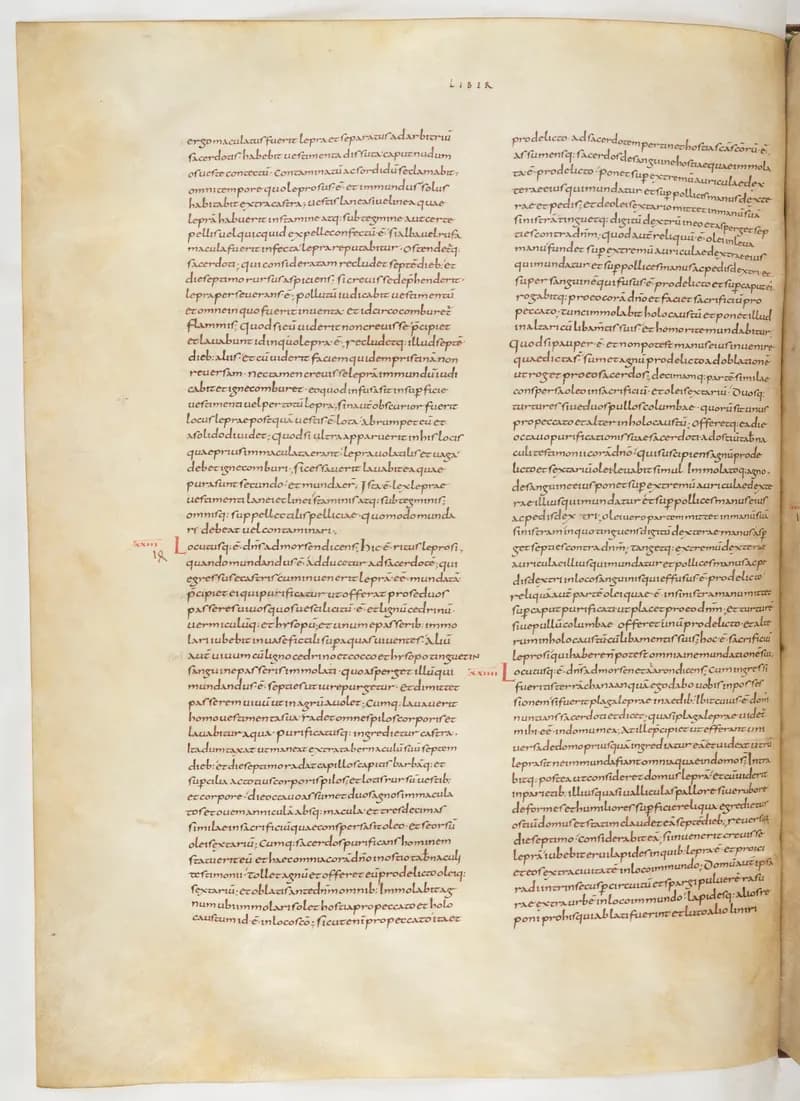 LIBER
ergo maculatus fuerit lepra et separatus ad arbitriū
sacerdotis habebit uestimenta dissuta caput nudum
os ueste contectū · Contaminatū ac sordidū se clamabit ;
omni tempore quo leprosus ē et immundus solus
habitabit extra castra ; uestis lanea siue linea quae
leprā habuerit in stamine atq; subtegmine aut certe
pellis uel quicquid ex pelle confectū ē · si alba uel rufa
macula fuerit infecta lepra reputabitur · ostendetq;
sacerdoti ; qui consideratam recludet septē dieb; et
die septimo rursus aspiciens ; si creuisse deprhenderit ·
lepra perseuerans ē ; pollutū iudicabit uestimentū
et omne in quo fuerit inuenta · et idcirco comburet̄
flammis ; quod si eū uiderit non creuisse p̄cipiet
et lauabunt id in quo lepra ē ; recludetq; illud septē
dieb; aliis · et cū uiderit faciem quidem pristinā non
reuersam · nec tamen creuisse leprā immundū iudi
cabit et igne comburet · eo quod infusa sit in supficie
uestimenti uel per totū lepra ; sin aut̄ obscurior fuerit
locus leprae postquā uestis ē lota · abrumpet eū et
a solido diuidet ; quod si ultra apparuerit in his locis
quae prius immaculata erant · lepra uolatilis et uaga
debet igne comburi ; si cessauerit lauabit ea quae
pura sunt secundo et munda er̄ ; Ista ē lex leprae
uestimenti lanei et linei staminis atq; subtegminis ;
omnisq; suppellectilis pelliciae · quomodo munda
ri debeat uel contaminari ;
xxiii Locutusq; ē dn̄s ad morsen dicens ; hic ē ritus leprosi ;
quando mundandus ē · adducetur ad sacerdotē ; qui
egressus e castris cum inuenerit leprā ēē mundatā
p̄cipiet ei qui purificatur ut offerat pro se duos
passeres uiuos quos uesci licitū ē · et lignū cedrinū
uermiculūq; et hysopū ; et unum e passerib; immo
lari iubebit in uase fictili sup aquas uiuentes · Aliū
aut̄ uiuum cū ligno cedrino et cocco et hysopo tinguet in
sanguine passeris immolati · quo asperget illū qui
mundandus ē · septies ut iure purgetur · Et dimittet
passerem uiuū ut in agrū auolet ; Cumq; lauauerit
homo uestimenta sua · radet omnes pilos corporis et
lauabitur aqua · purificatusq; ingredietur castra ·
Ita dumtaxat ut maneat extra tabernaculū suū septem
dieb; et die septimo radat capillos capitis barbāq; et
supcilia ac totius corporis pilos ; et lotis rursū uestib;
et corpore · die octauo assumet duos agnos immacula
tos et ouem anniculā absq; macula · et tres decimas
similae in sacrificiū quae conspersa sit oleo · et seorsū
olei sextariū ; Cumq; sacerdos purificans hominem
statuerit eū et haec omnia corā dn̄o in ostio tabnaculi
testimonii · tollet agnū et offeret eū pro delicto oleiq;
sextariū ; et oblatis ante dn̄m omnib; Immolabit ag
num ubi immolari solet hostia pro peccato et holo
caustum id ē in loco sc̄o ; sicut eni pro peccato ita et
pro delicto · ad sacerdotem pertinet hostia sc̄a sc̄orū ē ·
Assumensq; sacerdos de sanguine hostiae quae immola
ta ē pro delicto · ponet sup extremū auriculae dex
terae eius qui mundatur et sup pollices manus dexte
rae et pedis ; et de olei sextario mittet in manū suā
sinistrā tinguetq; digitū dextrū in eo et asperget sep
ties contra dn̄m ; quod aut̄ reliquū ē olei in leua
manu fundet sup extremū auriculae dextrae eius
qui mundatur et sup pollices manus ac pedis dextri et
super sanguinē qui fusus ē pro delicto et sup caput ei
rogabitq; pro eo corā dn̄o et faciet sacrificiū pro
peccato ; tunc immolabit holocaustū et ponet illud
in altari cū libam̄tis suis et homo rite mundabitur
quod si pauper ē · et non potest manus eius inuenire
quae dicta s̄ · sumet agnū pro delicto ad oblationē ·
ut roget pro eo sacerdos ; decimamq; partē similae
conspersa oleo in sacrificiū · et olei sextariū · Duosq;
turtures siue duos pullos columbae · quorū sit unus
pro peccato et alter in holocaustū ; Offeretq; ea die
octauo purificationis suae sacerdoti ad ostiū tabna
culi testimonii corā dn̄o · qui suscipiens agnū pro de
licto et sextariū olei leuabit simul · Immolatoq; agno ·
de sanguine eius ponet sup extremū auriculae dexte
rae illius qui mundatur et sup pollices manus eius
ac pedis dextri ; olei uero partem mittet in manū suā
sinistram in quo tinguens digitū dextrae manus asp
get septies contra dn̄m ; tangetq; extremū dextrae
auriculae illius qui mundatur et pollices manus ac pe
dis dextri in loco sanguinis qui effusus ē pro delicto
reliquā aut̄ partē olei quae ē in sinistra manu mittet
sup caput purificati ut placet pro eo dn̄m ; et turturē
siue pullū columbae offeret unū pro delicto et alte
rum in holocaustū cū libamentis suis ; hoc ē sacrificiū
leprosi qui habere n̄ potest omnia in emundationē sui ;
xxiiii Locutusq; ē dn̄s ad morsen et aaron dicens ; Cum ingressi
fueritis terrā chanaan quā ego dabo uobis in posses
sionem si fuerit plaga leprae in aedib; Ibit cuius ē dom
nuntians sacerdoti et dicet ; quasi plaga leprae uidet̄
mihi ēē in domu mea ; At ille p̄cipiet ut efferant uni
uersa de domo prius quā ingrediatur eā et uideat utrū
lepra sit ne immunda fiant omnia quae in domo s̄ ; Intra
bitq; postea ut consideret domus leprā ; et cū uiderit
in parietib; illius quasi ualliculas pallore siue rubore
deformes et humiliores supficie reliqua egredietur
ostiū domus et statim claudet eā septē dieb; reuersq;
die septimo considerabit eā ; si inuenerit creuisse
leprā iubebit erui lapides in quib; lepra ē et proici
eos extra ciuitatē in loco immundo ; Domū aut̄ ipsā
radi intrinsecus p circuitū et spargi puluerē rasu
rae extra urbē in loco immundo · lapidesq; alios re
poni pro his qui ablati fuerint et luto alio liniri